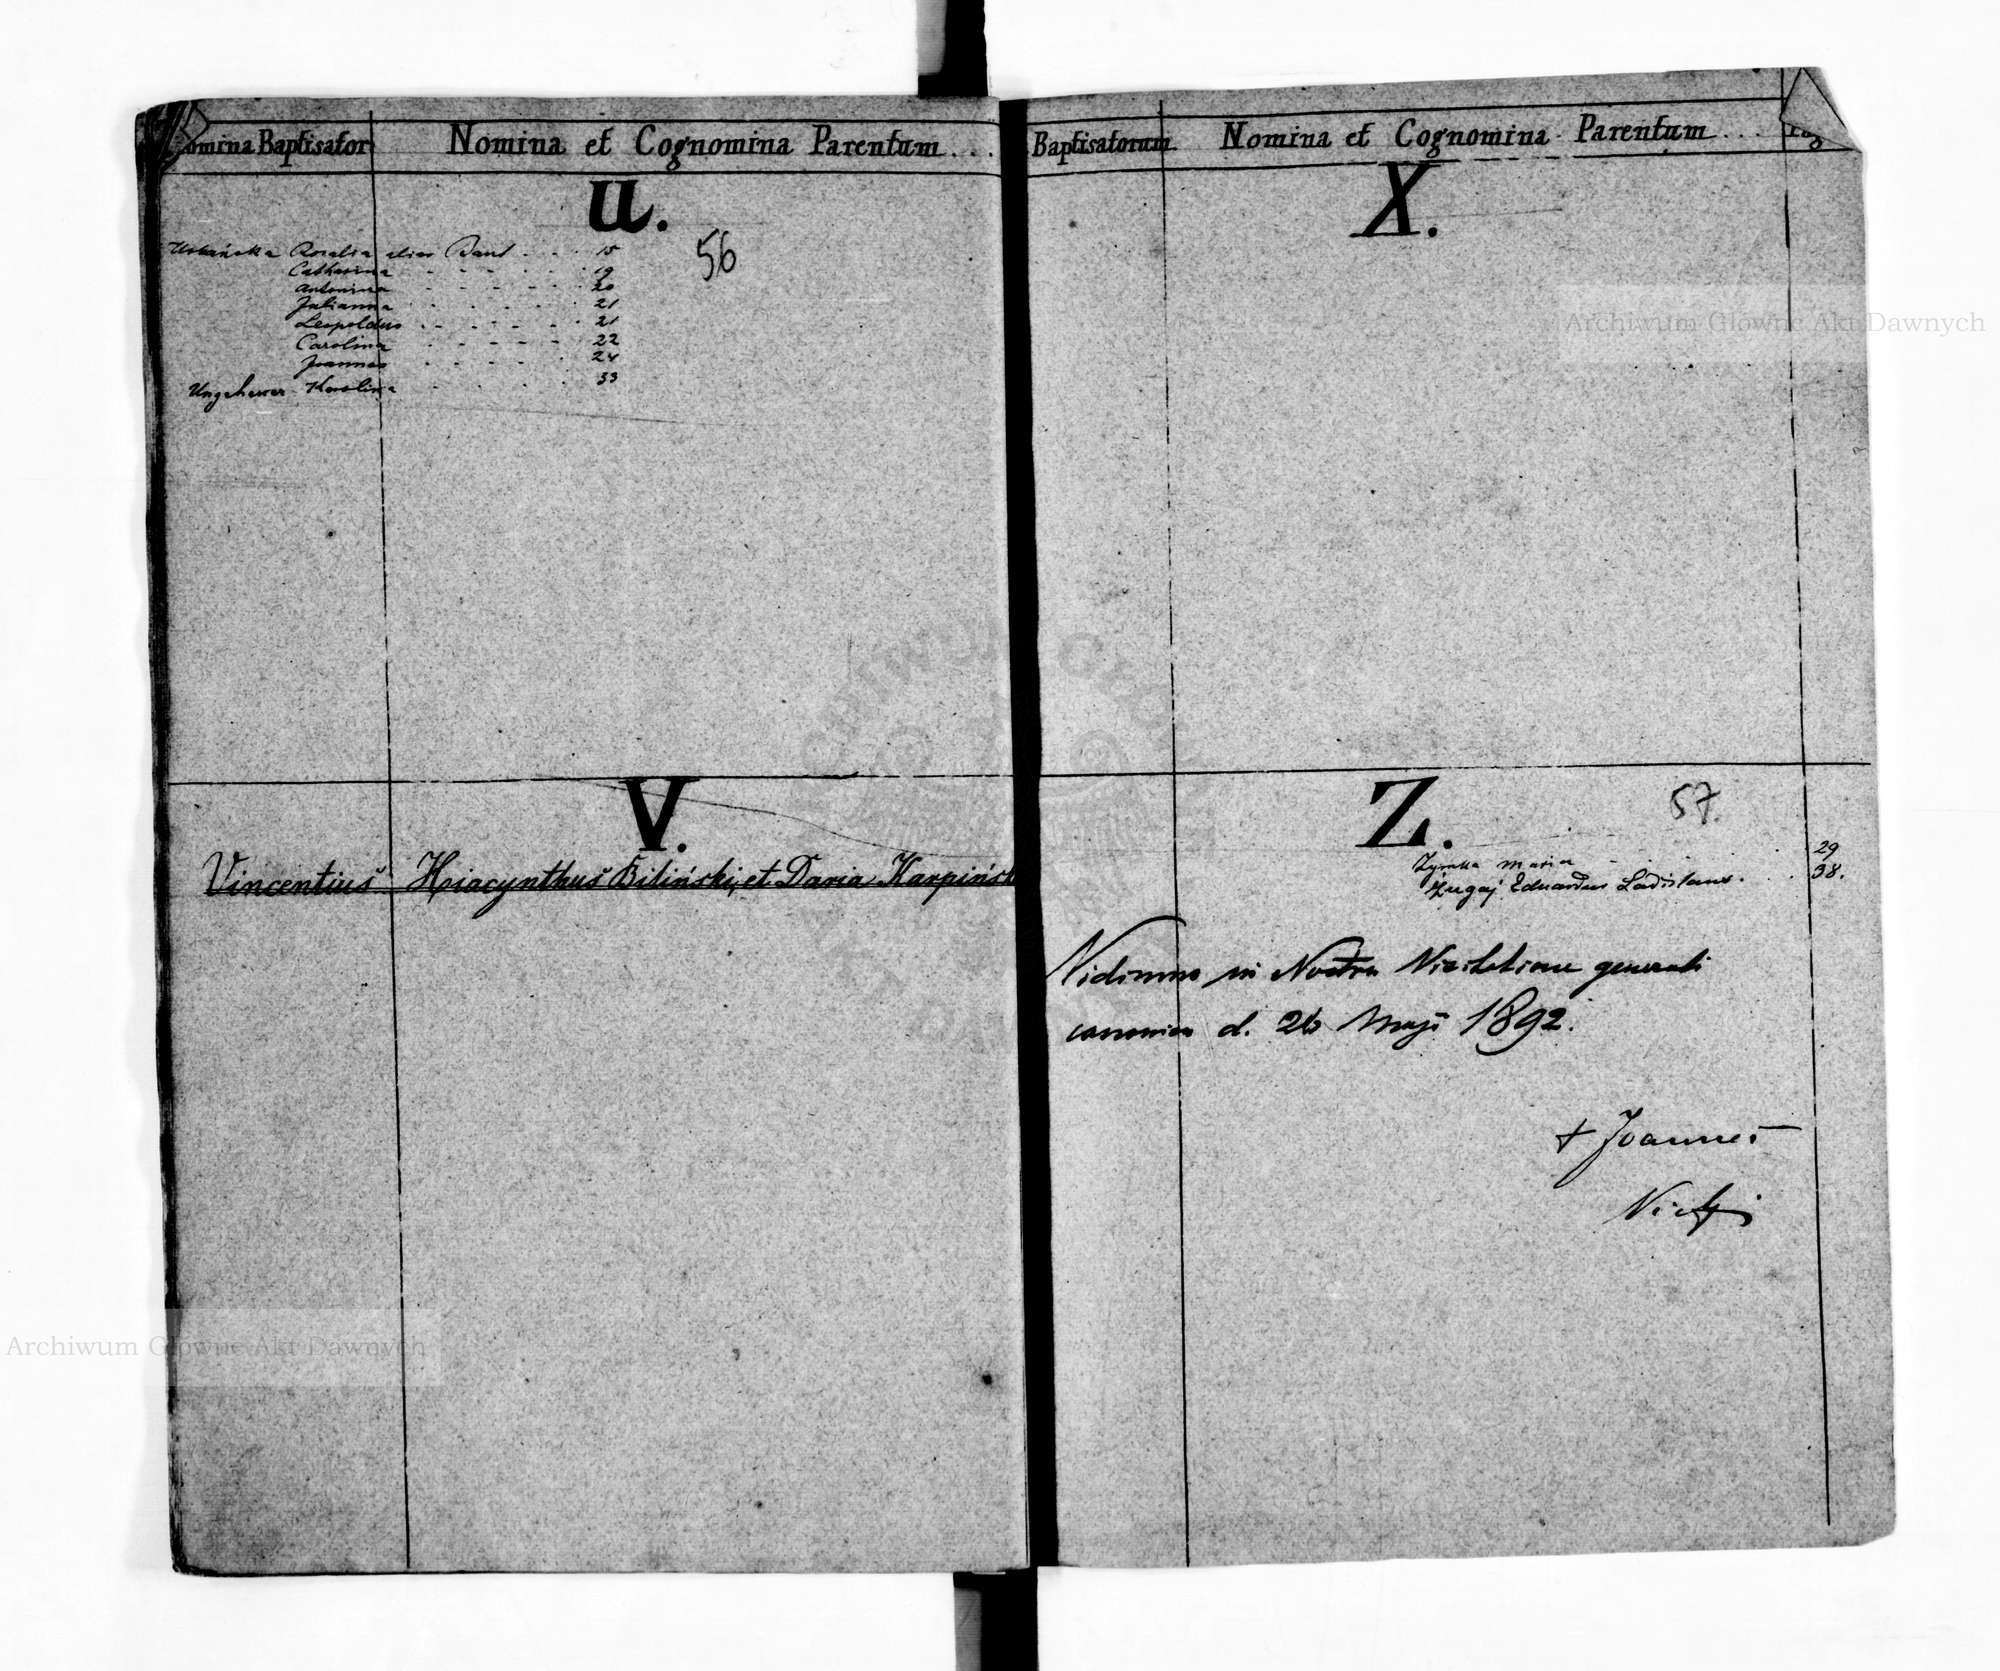 Nomina Baptisator
Nomina et Cognomina Parentum...
U.
56
Urbańska Rosalia alias Band . . . 15
Catharina - - - - - 19
Antonina - - - - - 20
Julianna . . . . . 21
Leopoldus . - - - . 21
Carolina - - - - - 22
Joannes . - - - . 24
Ungeheuer Karolina - . . . . 33
V.
Vincentius Hiacynthus Biliński, et Daria Karpińsk
Baptisatorum
Nomina et Cognomina Parentum...
Pag
X.
Z.
57.
Maria . . 29
Żugaj Eduardus Ladislaus. . . 38.
Vidimus in Nostra Visitatione generali
canonica d. 26 Maji 1892.
+ Joannes
Archiwum Główne Akt Dawnych
Archiwum Główne Akt Dawnych